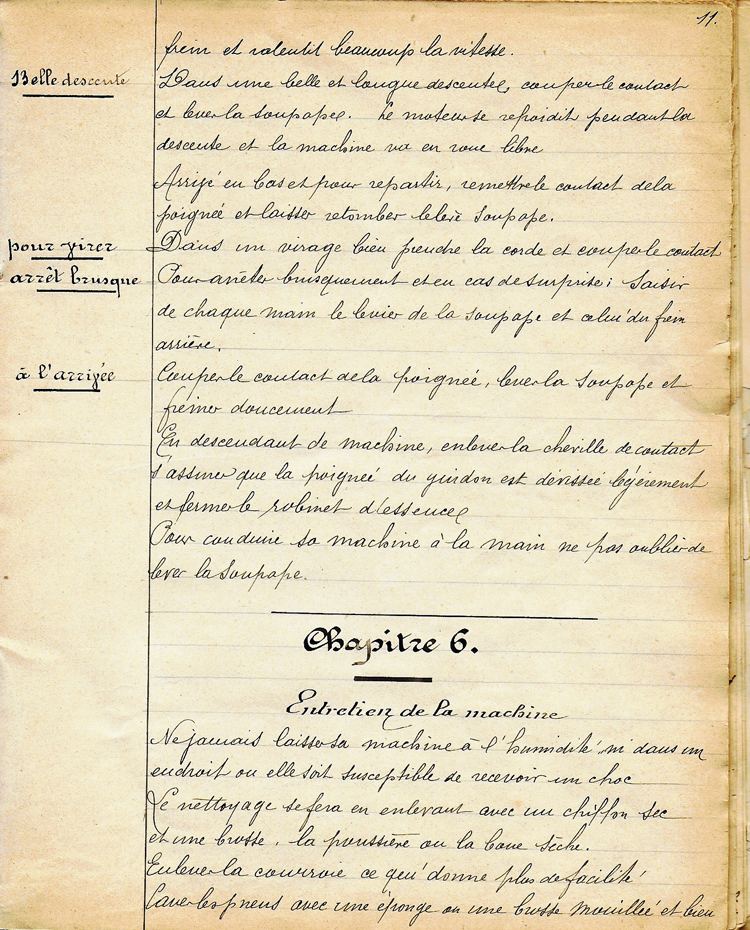 11.
frein et ralentit beaucoup la vitesse.
Belle descente
Dans une belle et longue descente, couper le contact
et lever la soupape. Le moteur se refroidit pendant la
descente et la machine va en roue libre
Arrivé en bas et pour repartir, remettre le contact de la
poignée et laisser retomber le lève soupape.
pour virer
Dans un virage bien prendre la corde et couper le contact
arrêt brusque
Pour arrêter brusquement et en cas de surprise; saisir
de chaque main le levier de la soupape et celui du frein
arrière.
à l'arrivée
Couper le contact de la poignée, lever la soupape et
freiner doucement
En descendant de machine, enlever la cheville de contact
s'assurer que la poignée du guidon est dévissée légèrement
et fermer le robinet d'essence
Pour conduire sa machine à la main ne pas oublier de
lever la soupape.
Chapitre 6.
Entretien de la machine
Ne jamais laisser sa machine à l'humidité ni dans un
endroit ou elle soit susceptible de recevoir un choc
Le nettoyage se fera en enlevant avec un chiffon sec
et une brosse, la poussière ou la boue sèche.
Enlever la courroie ce qui donne plus de facilité
Laver les pneus avec une éponge ou une brosse mouillée et bien